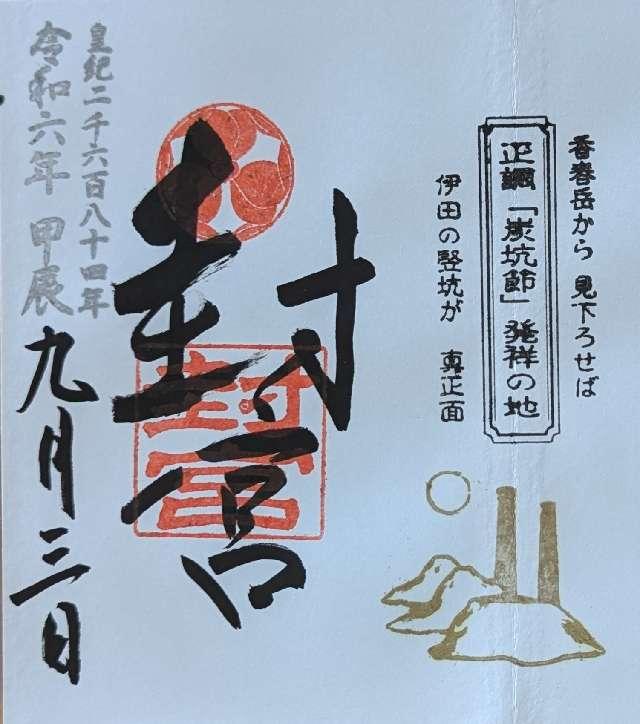 香春岳から 見下ろせば
正調「炭坑節」発祥の地
伊田の竪坑が 真正面
封宮
封宮
皇紀二千六百八十四年
令和六年 甲辰
九月三日